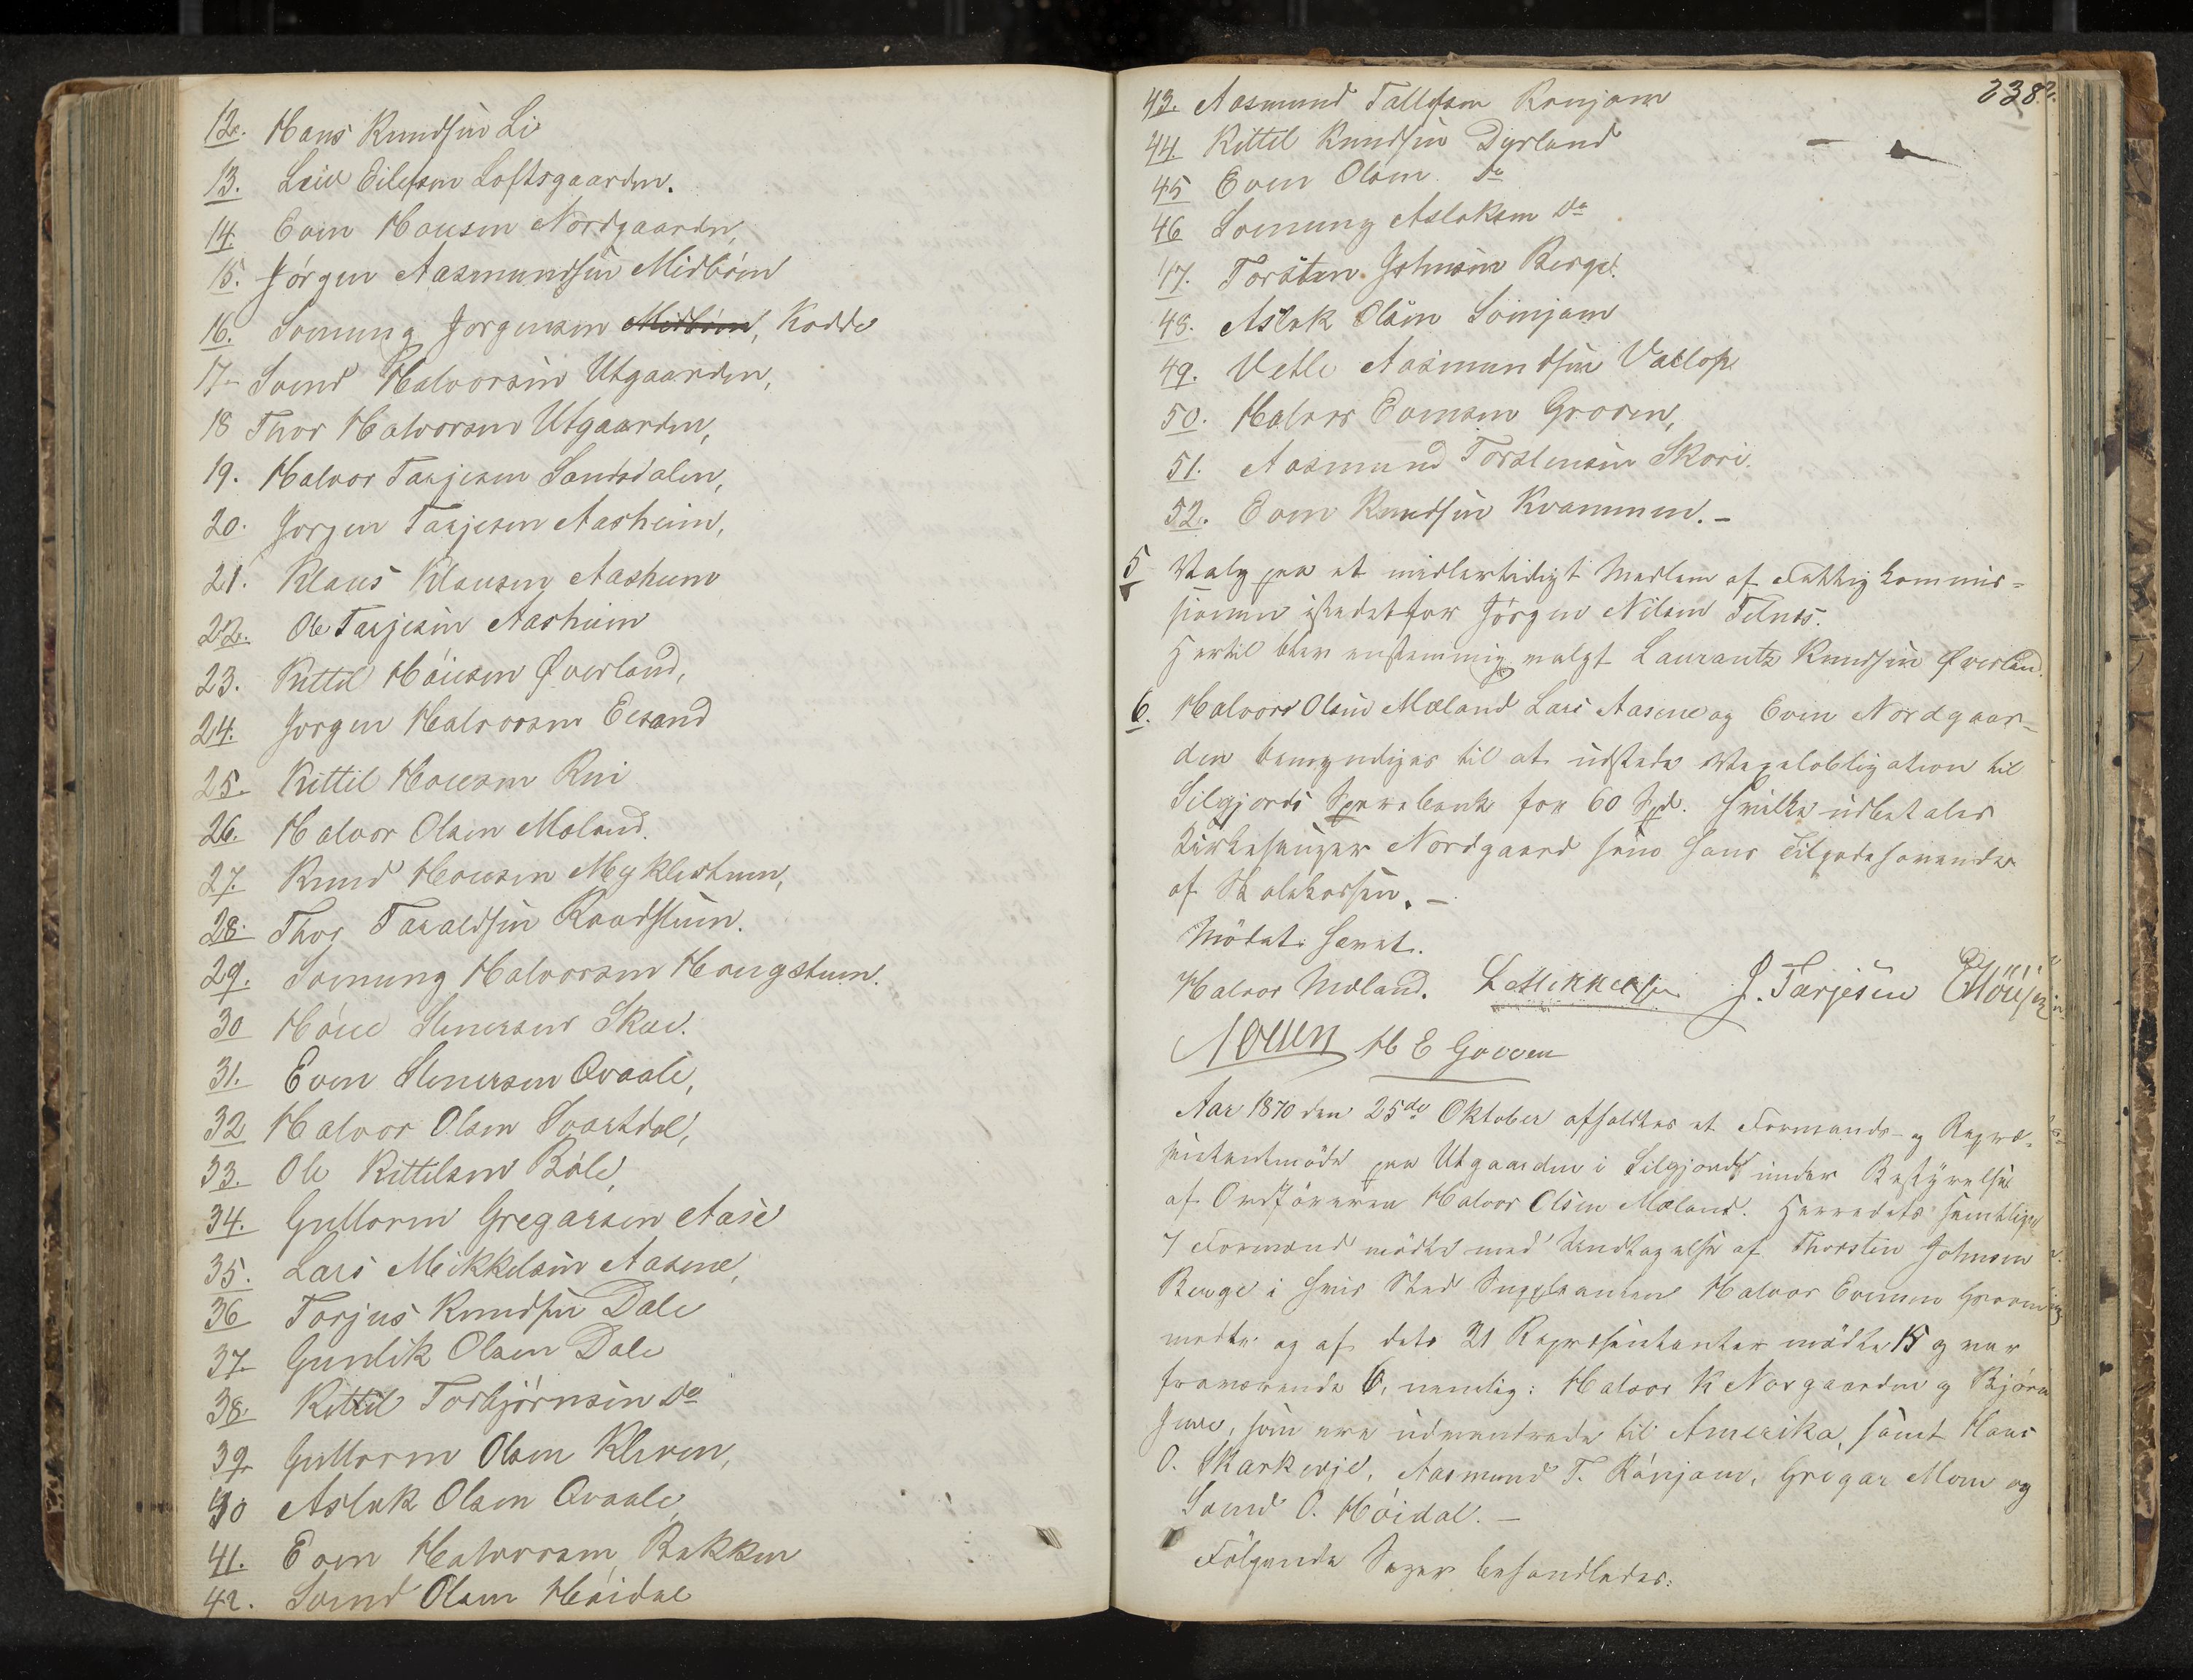 12. Hans Knudsen Li
13. Leiv Eilefsen Loftsgaarden.
14. Even Housen Nordgaarden,
15. Jörgen Aasmundsen Midböen
16. Svenung Jörgensen Midböen, Kodde
17- Svend Halvorsen Utgaarden,
18 Thor Halvorsen Utgaarden,
19. Halvor Tarjesen Sandsdalen,
20. Jorgen Tarjesen Aasheim,
21. Klaus Klausen Aasheim
22. Ole Tarjesen Aasheim
23. Kittil Höiesen Øverland,
24. Jorgen Halvorsen
25. Kittil Housen Rui
26. Halvor Olsen Moland.
27. Knud Housen Myklestuen,
28. Thor Taraldsen Raadstuen.
29. Svenung Halvorsen Haugstuen.
30 Höie Stenersen Skee.
31. Even Stenersen Qvaale,
32 Halvor Olsen Svartdal,
33. Ole Kittelsen Böle,
34. Guttorm Gregarsen Aase
35. Lars Mikkelsen Aasene,
36 Torjus Knudsen Dale
37. Gunlik Olsen Dale
38. Kittil Torbjörnsen do
39. Guttorm Olsen Kleven,
40 Aslak Olsen Qvaale,
41. Even Halvorsen Bakken
42. Svend Olsen Höidal
238.
43. Aasmund Tallefsen Rønjom
44. Kittil Knudsen Dyrland
45 Even Olsen do
46 Svenung Aslaksen do
47. Torsten Johnsen Berge.
48. Aslak Olsen Seinjom
49. Vetle Aasmundsen
50. Halvor Evensen Groven,
51. Aasmund Torstensen Skori.
52. Even Knudsen Kvammen.-
5 Valg paa et midlertidigt Medlem af Fattigkommis=
sionen istedetfor Jörgen Nilsen Telnes.
Hertil blev enstemmig valgt Laurantz Knudsen Øverland.
6. Halvor Olsen Mæland Lars Aasene og Even Nordgaar=
den bemyndiges til at udstede Vexelobligation til
Silgjords Sparebank for 60 Spd. hvilke udbetales
Kirkesanger Nordgaard som hans Tilgodehavende
af Skolekassen.-
Mödet hævet.
Halvor Mæland. L Mikkelsen J. Tarjesen EHöusen
H E Groven
Aar 1870 den 25de Oktober afholdtes et Formands- og Repræ-
sentantmöde paa Utgaarden i Silgjord under Bestyrelse
af Ordföreren Halvor Olsen Mæland. Herredets samtlige
7 Formænd mödte med Undtagelse af Thorsten Johnsen
Berge i hvis Sted Suppleanten Halvor Evensen Groven
mödte og af dets 21 Repræsentanter mödte 15 og var
fraværende 6, nemlig: Halvor K Norgaarden og Björn
Juve, som ere udvandrede til Amerika, samt Hans
O. Skarkerje, Aasmund T. Rönjom, Gregar Moen og
Svend O. Höidal.-
Fölgende Sager behandledes: